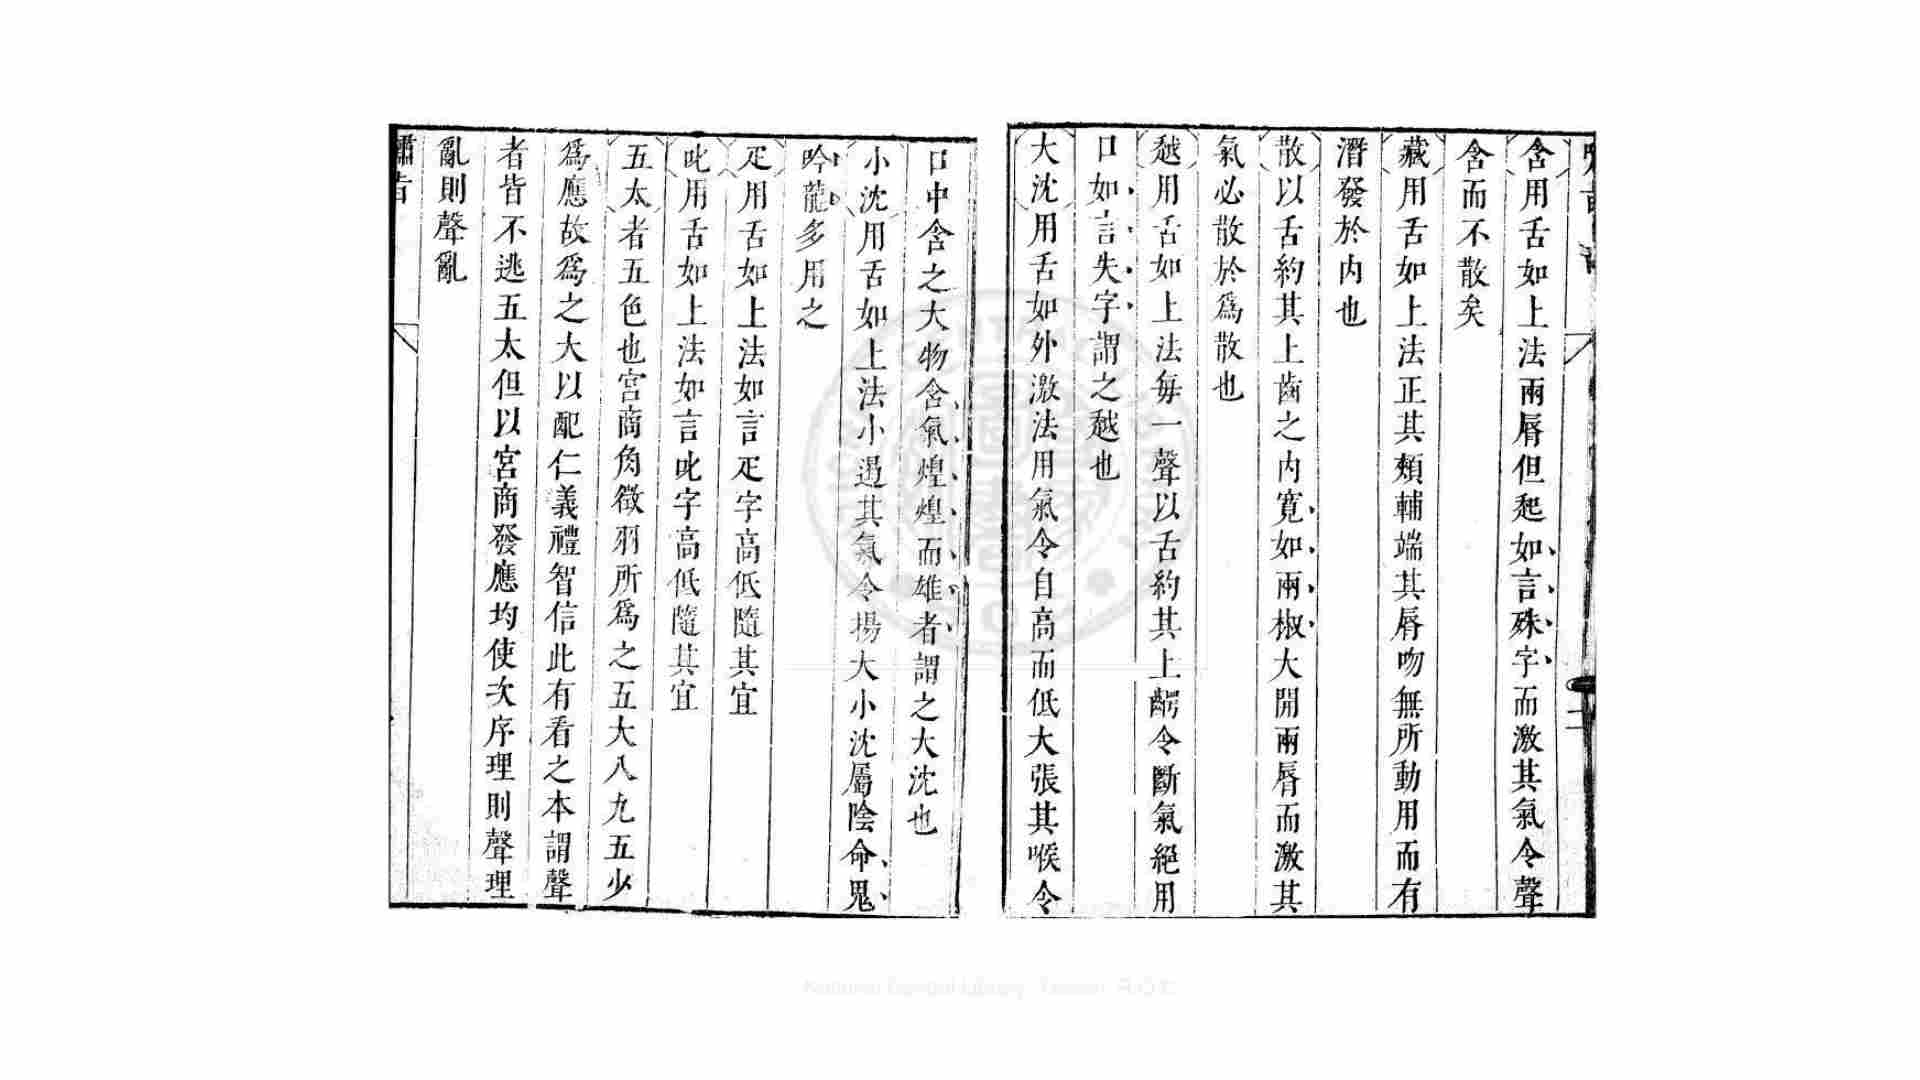 含用舌如上法兩脣但起如言殊字而激其氣令聲
含而不散矣
藏用舌如上法正其頰輔端其脣吻無所動用而有
潛發於内也
散以舌約其上齒之内寬如兩椒大開兩脣而激其
氣必散於爲散也
越用舌如上法每一聲以舌約其上齶令斷氣絕用
口如言失字謂之越也
大沈用舌如外激法用氣令自高而低大張其喉令
口中含之大物含氣煌煌而雄者謂之大沈也
小沈用舌如上法小遏其氣令揚大小沈屬陰命鬼
吟龍多用之
疋用舌如上法如言疋字高低隨其宜
叱用舌如上法如言叱字高低隨其宜
五太者五色也宮商角徵羽所爲之五大八九五少
爲應故爲之大以配仁義禮智信此有看之本謂聲
者皆不逃五太但以宮商發應均使次序理則聲理
亂則聲亂